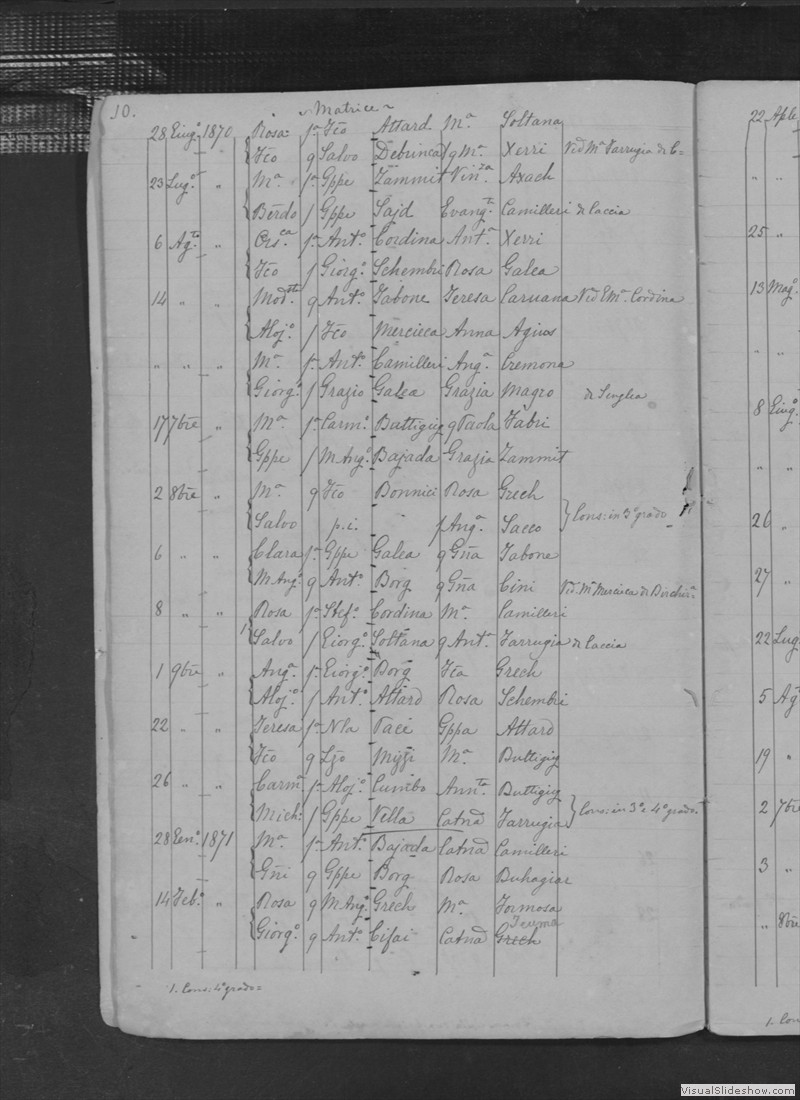 10. Matrice
28 Giug.o 1870 Rosa f. Fco Attard M.a Soltana
Fco q Salvo Debrincat f q M.a Xerri Vid. M.a Farrugia di C=
23 Lug.o " M.a f. Gppe Zammit Vin.za Axach
Berdo f Gppe Sajd Evang.ta Camilleri di Caccia
6 Ag.to " Crs.ca f. Ant.o Cordina Ant.a Xerri
Fco f Giorg.o Schembri Rosa Galea
14 " " Mod.sta q Ant.o Tabone Teresa Caruana Vid. E M.a Cordina
Aloj.o f Fco Mercieca Anna Agius
" " " M.a f. Ant.o Camilleri Ang.a Cremona
Giorg.o f Grazio Galea Grazia Magro di Senglea
17 7bre " M.a f. Carm.o Buttigieg q Paola Fabri
Gppe f M. Ang.o Bajada Grazia Zammit
2 8bre " M.a q Fco Bonnici Rosa Grech
Salvo p.i. f Ang.a Sacco } Cons: in 3.o grado
6 " " Clara f. Gppe Galea q Gña Tabone
M. Ang.o q Ant.o Borg q Gña Cini Vid. M.a Mercieca di
8 " " Rosa f. Stef.o Cordina M.a Camilleri
1 Salvo f Giorg.o Soltana q Ant.a Farrugia di Caccia
1 9bre " Ang.a f. Giorg.o Borg Fca Grech
Aloj.o f Ant.o Attard Rosa Schembri
22 " " Teresa f. Nla Paci Gppa Attard
Fco q Lzo Mizzi M.a Buttigieg
26 " " Carm.a f. Aloj.o Cumbo Ann.ta Buttigieg
Mich: f Gppe Vella Catna Farrugia } Cons: in 3.o e 4.o grado
28 Gen.o 1871 M.a f. Ant.o Bajada Catna Camilleri
Gñi q Gppe Borg Rosa Buhagiar
14 Feb.o " Rosa q M. Ang.o Grech M.a Formosa
Teuma
Giorg.o q Ant.o Cifai Catna Grech
1. Cons: 4.o grado=
22 Aple
" "
25 "
13 Mag.o
" "
8 Giug.o
" "
26 "
27 "
22 Lug
5 Ag
19 "
2 7bre
3 "
" 8bre
1. Con
VisualSlideshow.com